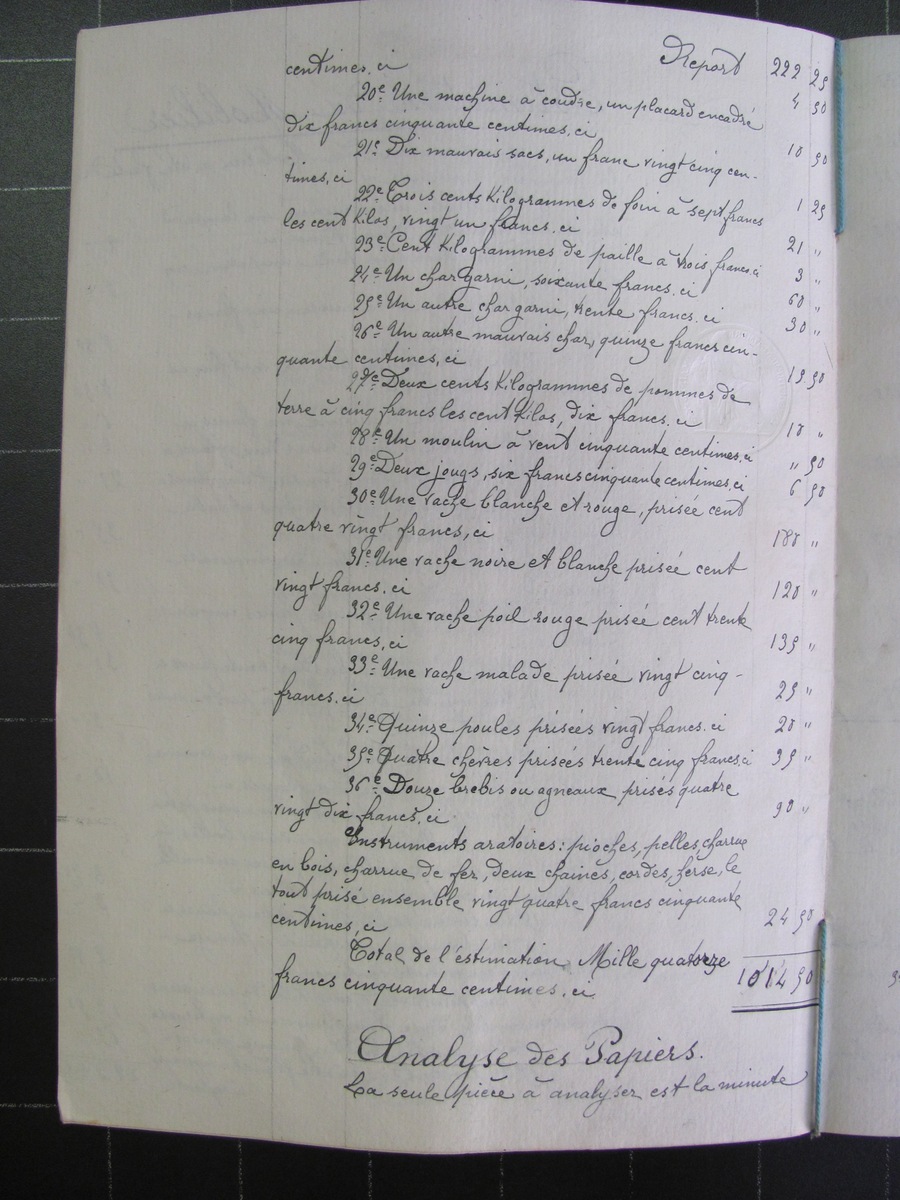 Report 222 25
centimes, ci 4 50
20e Une machine à coudre, un placard encadré
dix francs cinquante centimes, ci 10 50
21e Dix mauvais sacs, un franc vingt cinq cen-
times, ci 1 25
22e Trois cents Kilogrammes de foin à sept francs
les cent Kilos, vingt un francs, ci 21 "
23e Cent Kilogrammes de paille à trois francs, ci 3 "
24e Un char garni, soixante francs, ci 60 "
25e Un autre char garni, trente francs, ci 30 "
26e Un autre mauvais char, quinze francs cin-
quante centimes, ci 15 50
27e Deux cents Kilogrammes de pommes de
terre à cinq francs les cent Kilos, dix francs, ci 10 "
28e Un moulin à vent cinquante centimes, ci " 50
29e Deux jougs, six francs cinquante centimes, ci 6 50
30e Une vache blanche et rouge, prisée cent
quatre vingt francs, ci 180 "
31e Une vache noire et blanche prisée cent
vingt francs, ci 120 "
32e Une vache poil rouge prisée cent trente
cinq francs, ci 135 "
33e Une vache malade prisée vingt cinq-
francs, ci 25 "
34e Quinze poules prisées vingt francs, ci 20 "
35e Quatre chèvres prisées trente cinq francs, ci 35 "
36e Douze brebis ou agneaux prisés quatre
vingt dix francs, ci 90 "
Instruments aratoires: pioches, pelles, charrue
en bois, charrue de fer, deux chaines, cordes, herse, le
tout prisé ensemble vingt quatre francs cinquante
centimes, ci 24 50
Total de l'éstimation Mille quatorze
francs cinquante centimes, ci 1014 50
Analyse des Papiers.
La seule pièce à analyser est la minute